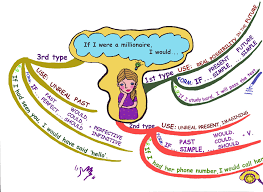 If I were a millionaire,
I would ...
3rd type
USE: UNREAL PAST
IF PAST PERFECT,
WOULD
COULD
SHOULD
+
PERFECTIVE
INFINITIVE
If I had seen you, I would have said 'hello'.
1st type
USE: REAL POSSIBILITY IN THE FUTURE
FORM: IF PRESENT SIMPLE, ... FUTURE SIMPLE
If I study hard, I will pass the test.
2nd type
USE: UNREAL PRESENT, IMAGINING
IF PAST SIMPLE, ...
WOULD,
COULD, + V.
SHOULD
If I had her phone number, I would call her